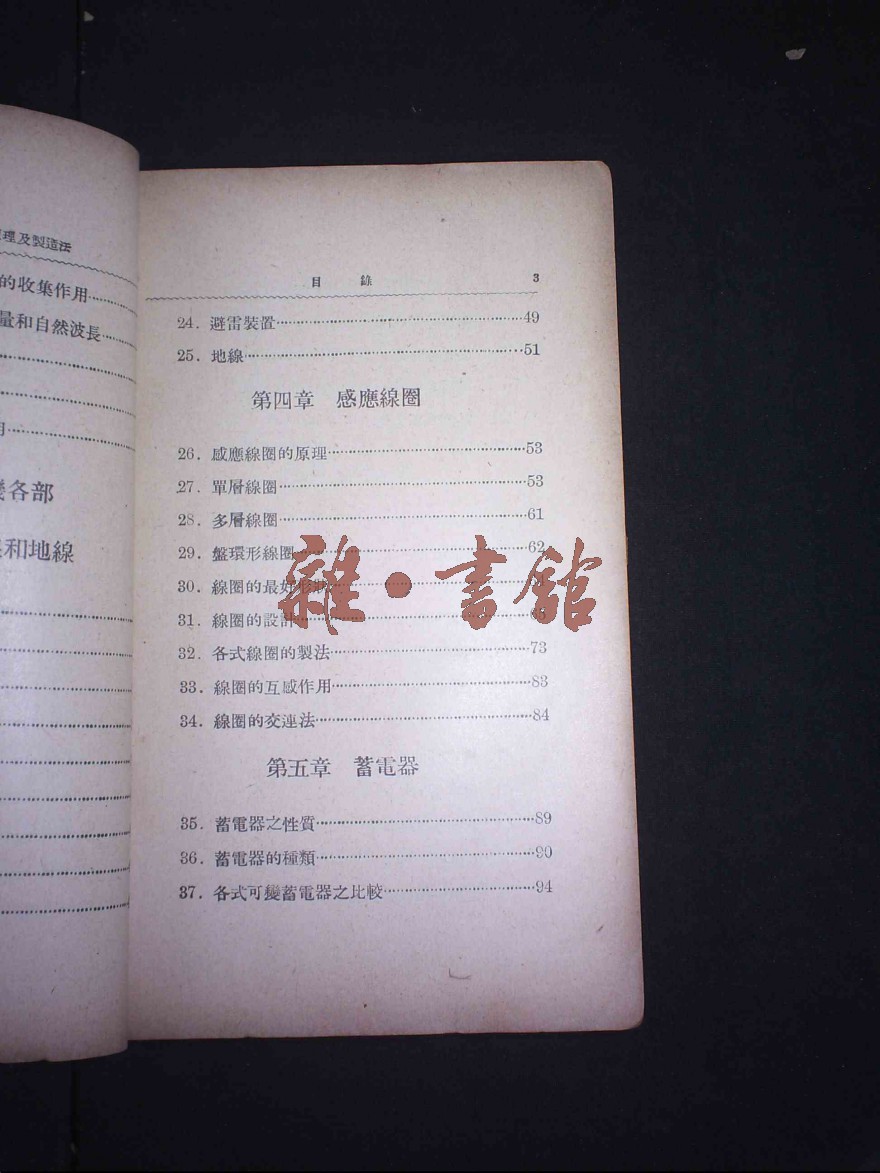 理及製造法
的收集作用
量和自然波長
各部
和地線
目 錄 3
24. 避雷裝置 49
25. 地線 51
第四章 感應線圈
26. 感應線圈的原理 53
27. 單層線圈 53
28. 多層線圈 61
29. 盤環形線圈 62
30. 線圈的最好形狀
31. 線圈的設計
32. 各式線圈的製法 73
33. 線圈的互感作用 83
34. 線圈的交連法 84
第五章 蓄電器
35. 蓄電器之性質 89
36. 蓄電器的種類 90
37. 各式可變蓄電器之比較 94
雜·書館